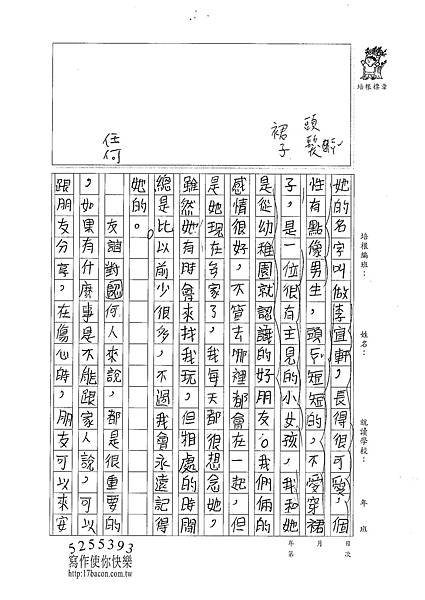 培根標章
頭髮
裙子
任何
培根編班：
姓名：
就讀學校：
年 班
年 月 日
第 次
她的名字叫做李宜軒，長得很可愛，個
性有點像男生，頭戶短短的，不愛穿裙
子，是一位很有主見的小女孩，我和她
是從幼稚園就認識的好朋友。我們倆的
感情很好，不管去哪裡都會在一起，但
是她現在多家了，我每天都很想念她，
雖然她有時會來找我玩，但相處的時間
總是比以前少很多，不過我會永遠記得
她的。
友誼對何人來說，都是很重要的
，如果有什麼事是不能跟家人說，可以
跟朋友分享，在傷心時，朋友可以來安
5255393
寫作使你快樂
http://17bacon.com.tw